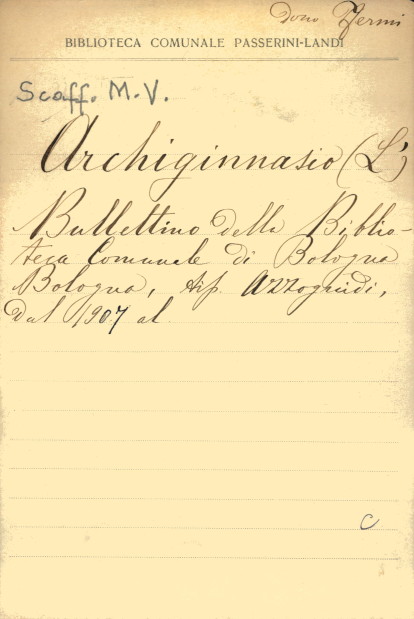 Dono Zermi
BIBLIOTECA COMUNALE PASSERINI-LANDI
Scaff. M.V.
Archiginnasio (L')
Bullettino della Biblio-
teca Comunale di Bologna
Bologna, tip. Azzoguidi,
Dal 1907 al
C